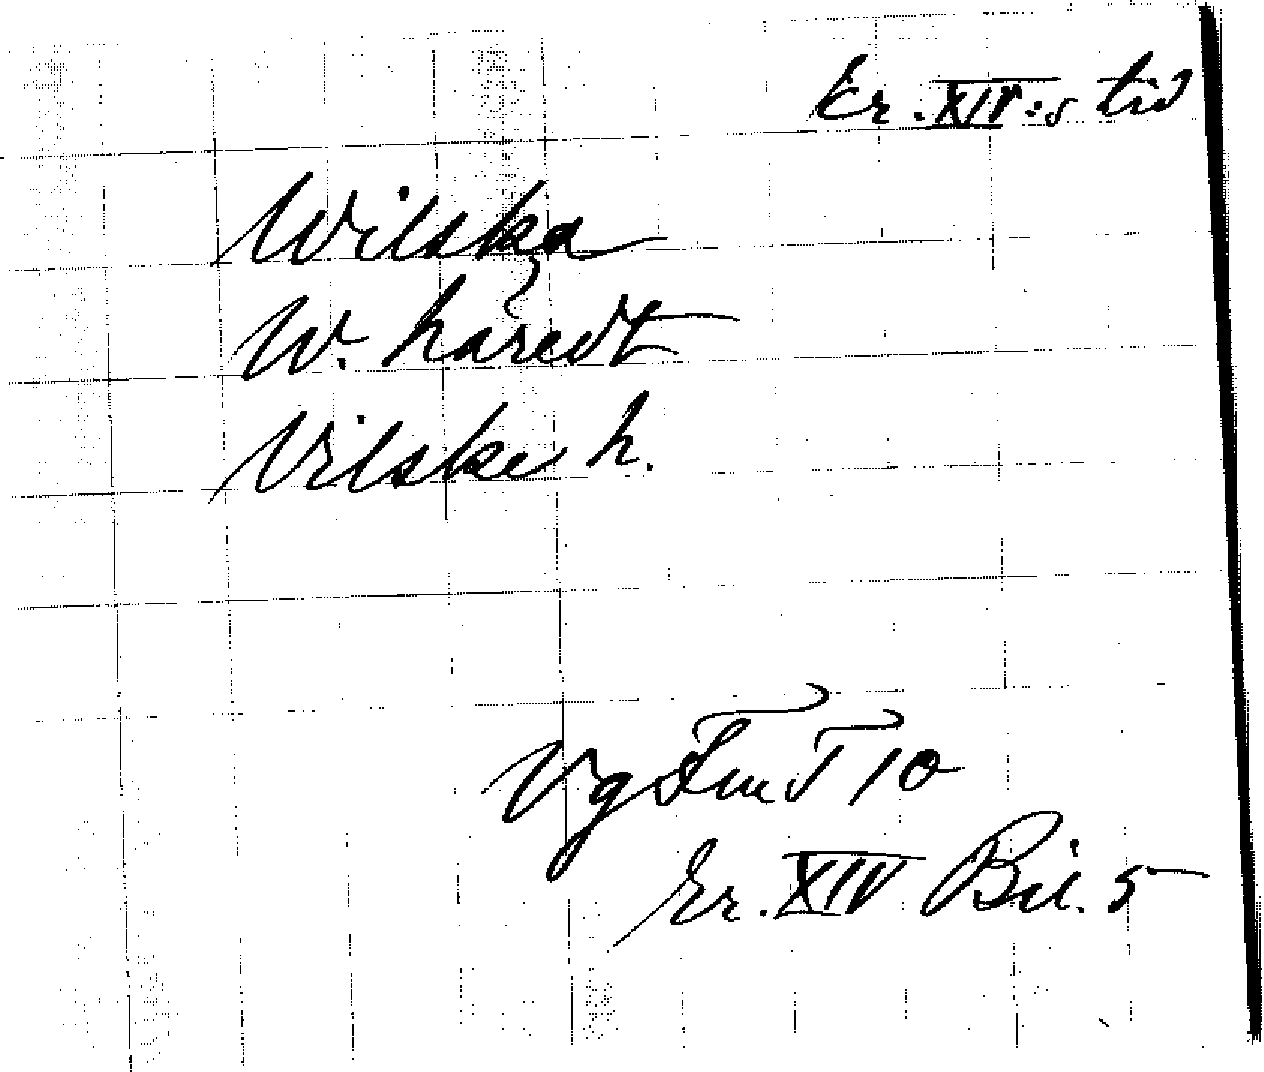 Er. XIV:s tid
Wilska
W. häredt
Vilske h.
Vg Fru T 10
Er. XIV Bil. 5